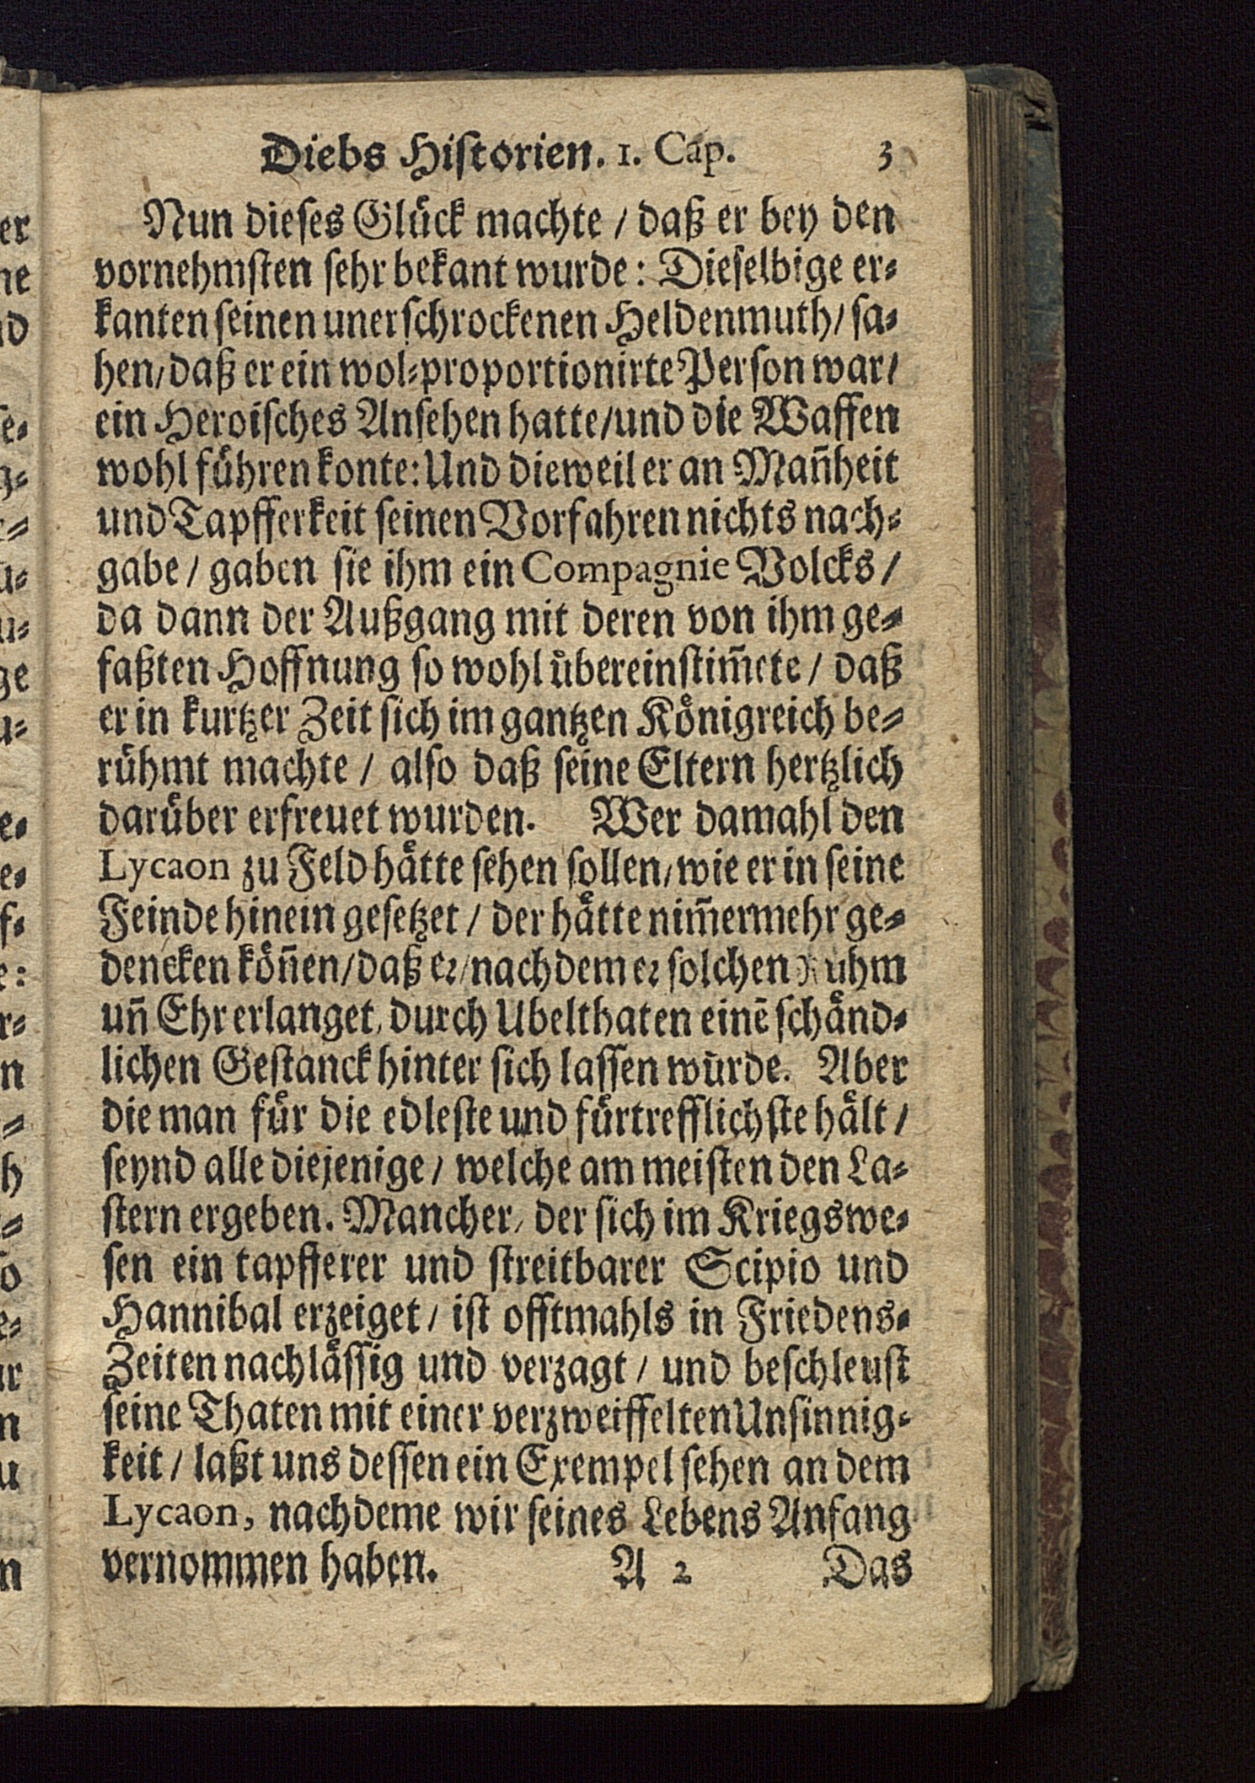 Diebs Historien. 1. Cap. 3
Nun dieses Glück machte / daß er bey den
vornehmsten sehr bekant wurde: Dieselbige er-
kanten seinen unerschrockenen Heldenmuth / sa-
hen / daß er ein wol-proportionirte Person war /
ein Heroisches Ansehen hatte / und die Waffen
wohl führen konte: Und dieweil er an Mañheit
und Tapfferkeit seinen Vorfahren nichts nach-
gabe / gaben sie ihm ein Compagnie Volcks /
da dann der Außgang mit deren von ihm ge-
faßten Hoffnung so wohl übereinstim̃ete / daß
er in kurtzer Zeit sich im gantzen Königreich be-
rühmt machte / also daß seine Eltern hertzlich
darüber erfreuet wurden. Wer damahl den
Lycaon zu Feld hätte sehen sollen / wie er in seine
Feinde hinein gesetzet / der hätte nim̃ermehr ge-
dencken köñen / daß er / nachdem er solchen Ruhm
uñ Ehr erlanget, durch Ubelthaten einẽ schänd-
lichen Gestanck hinter sich lassen würde. Aber
die man für die edleste und fürtrefflichste hält /
seynd alle diejenige / welche am meisten den La-
stern ergeben. Mancher / der sich im Kriegswe-
sen ein tapfferer und streitbarer Scipio und
Hannibal erzeiget / ist offtmahls in Friedens-
Zeiten nachlässig und verzagt / und beschleust
seine Thaten mit einer verzweiffelten Unsinnig-
keit / laßt uns dessen ein Exempel sehen an dem
Lycaon, nachdeme wir seines Lebens Anfang
vernommen haben. A 2 Das